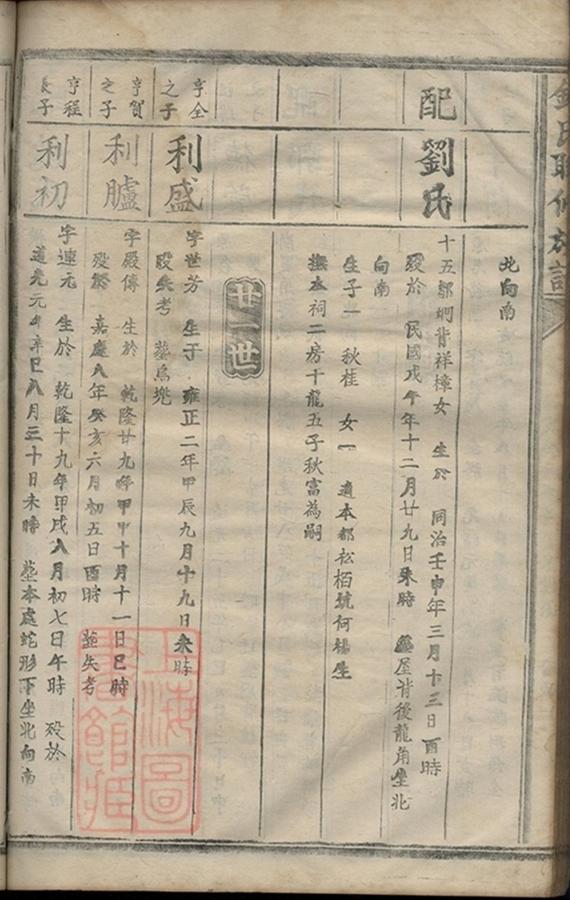 北向南
配
劉氏
十五都蜩背祥樟女 生於 同治壬申年三月十三日酉時
殁於 民國戊午年十二月廿九日未時 塟屋背後龍角坐北
向南
生子一 秋桂 女一 適本都松栢坑何楊生
撫本祠二房千龍五子秋富為嗣
廿一世
亨全之子
利盛
字世芳 生于 雍正二年甲辰九月十九日未時
殁失考 塟烏㘭
亨賀之子
利臚
字殿傳 生於 乾隆廿九年甲申十月十一日巳時
殁於 嘉慶八年癸亥六月初五日酉時 塟失考
亨程長子
利初
字連元 生於 乾隆十九年甲戌八月初七日午時 殁於
道光元年辛巳八月三十日未時 塟本處蛇形下坐北向南
上海圖書館藏